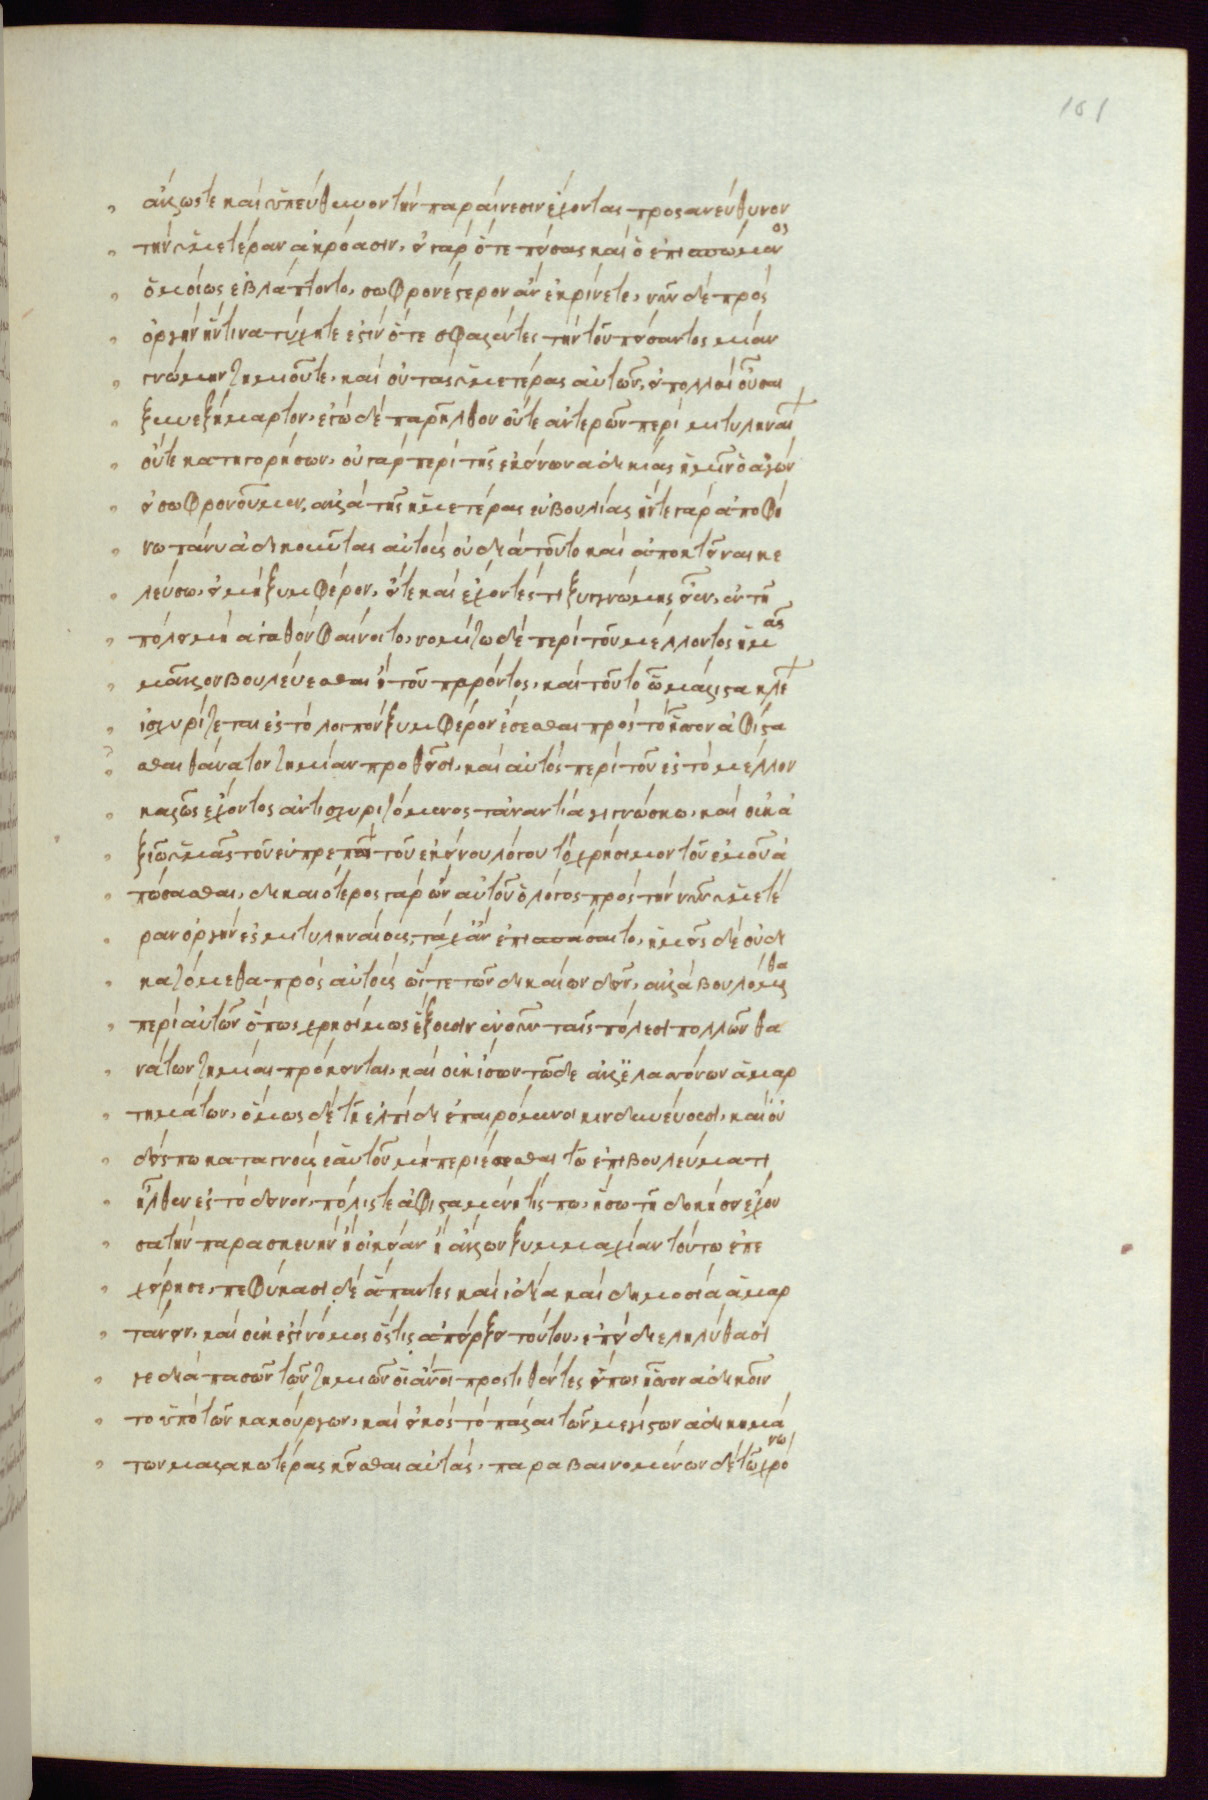 ἄλλως τε καὶ ὑπεύθυνον τὴν παραίνεσιν ἔχοντας πρὸς ἀνεύθυνον
τὴν ὑμετέραν ἀκρόασιν, εἰ γὰρ ὅ τε πείσας καὶ ὁ ἐπισπώμενος
ὁμοίως ἐβλάπτοντο, σωφρονέστερον ἂν ἐκρίνετε, νῦν δὲ πρὸς
ὀργὴν ἥντινα τύχητε ἔστιν ὅτε σφαλέντες τὴν τοῦ πείσαντος μίαν
γνώμην ζημιοῦτε, καὶ οὐ τὰς ὑμετέρας αὐτῶν, εἰ πολλαὶ οὖσαι
ξυνεξήμαρτον, ἐγὼ δὲ παρῆλθον οὔτε ἀντερῶν περὶ μιτυληναίων
οὔτε κατηγορήσων, οὐ γὰρ περὶ τῆς ἐκείνων ἀδικίας ἡμῖν ὁ ἀγών
εἰ σωφρονοῦμεν, ἀλλὰ τῆς ἡμετέρας εὐβουλίας ἤν τε γὰρ ἀποφή
νω πάνυ ἀδικοῦντας αὐτοὺς οὐ διὰ τοῦτο καὶ ἀποκτεῖναι κε
λεύσω, εἰ μὴ ξυμφέρον, εἴτε καὶ ἔχοντές τι ξυγγνώμης εἶεν, ἐν τῇ
πόλει μὴ ἀγαθὸν φαίνοιτο, νομίζω δὲ περὶ τοῦ μέλλοντος ἡμᾶς
μᾶλλον βουλεύεσθαι ἢ τοῦ παρόντος, καὶ τοῦτο ὃ μάλιστα κλέων
ἰσχυρίζεται ἐς τὸ λοιπὸν ξυμφέρον ἔσεσθαι πρὸς τὸ ἧσσον ἀφίστα
σθαι θάνατον ζημίαν προθεῖσι, καὶ αὐτὸς περὶ τοῦ ἐς τὸ μέλλον
καλῶς ἔχοντος ἀντισχυριζόμενος τἀναντία γιγνώσκω, καὶ οὐκ ἀ
ξιῶ ὑμᾶς τοῦ εὐπρεπεῖ τοῦ ἐκείνου λόγου τὸ χρήσιμον τοῦ ἐμοῦ ἀ
πώσασθαι, δικαιότερος γὰρ ὢν αὐτοῦ ὁ λόγος πρὸς τὴν νῦν ὑμετέ
ραν ὀργὴν ἐς μιτυληναίους, τάχ' ἂν ἐπισπάσαιτο, ἡμεῖς δὲ οὐ δι
καζόμεθα πρὸς αὐτοὺς ὥστε τῶν δικαίων δεῖν, ἀλλὰ βουλόμεθα
περὶ αὐτῶν ὅπως χρησίμως ἕξουσιν ἐν οὖν ταῖς πόλεσι πολλῶν θα
νάτων ζημίαι πρόκεινται, καὶ οὐκ ἴσων τῷδε ἀλλ' ἐλασσόνων ἁμαρ
τημάτων, ὅμως δὲ τῇ ἐλπίδι ἐπαιρόμενοι κινδυνεύουσι, καὶ οὐ
δείς πω καταγνοὺς ἑαυτοῦ μὴ περιέσεσθαι τῷ ἐπιβουλεύματι
ἦλθεν ἐς τὸ δεινόν, πόλις τε ἀφισταμένη τίς πω, ἥσσω τῇ δοκήσει ἔχου
σα τὴν παρασκευὴν ἢ οἰκείαν ἢ ἄλλων ξυμμαχίαν τούτῳ ἐπε
χείρησε, πεφύκασι δὲ ἅπαντες καὶ ἰδίᾳ καὶ δημοσίᾳ ἁμαρ
τάνειν, καὶ οὐκ ἔστι νόμος ὅστις ἀπείρξει τούτου, ἐπεὶ διεληλύθασί
γε διὰ πασῶν τῶν ζημιῶν οἱ ἄνοι προστιθέντες εἴπως ἧσσον ἀδικοῖν
το ὑπὸ τῶν κακούργων, καὶ εἰκὸς τὸ πάλαι τῶν μεγίστων ἀδικημά
των μαλακωτέρας κεῖσθαι αὐτάς, παραβαινομένων δὲ τῷ χρόνῳ